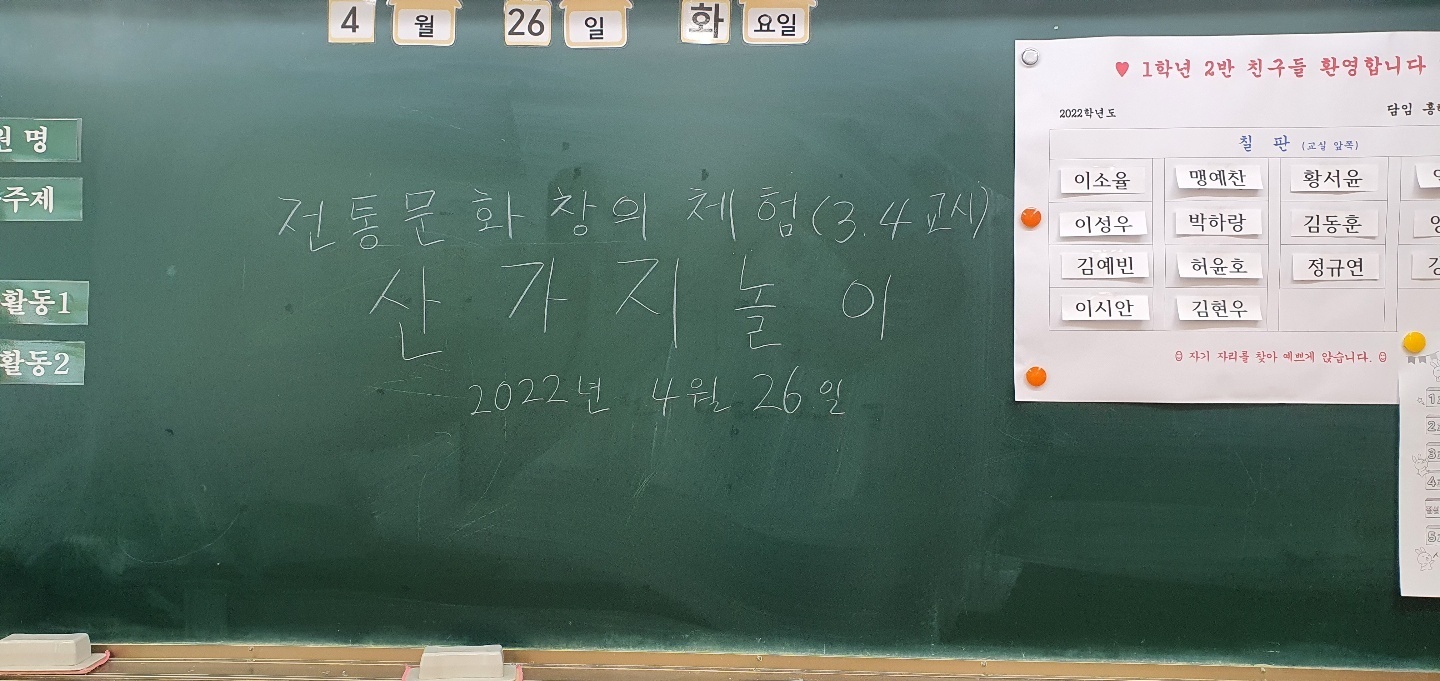 4 월 26 일 화 요일
명
주제
활동1
활동2
전통문화창의 체험(3.4교시)
산가지놀이
2022년 4월 26일
♥ 1학년 2반 친구들 환영합니다
2022학년도 담임
칠 판 (교실 앞쪽)
이소율 맹예찬 황서윤
이성우 박하랑 김동훈
김예빈 허윤호 정규연
이시안 김현우
자기 자리를 찾아 예쁘게 앉습니다.
1
2
3
4
5